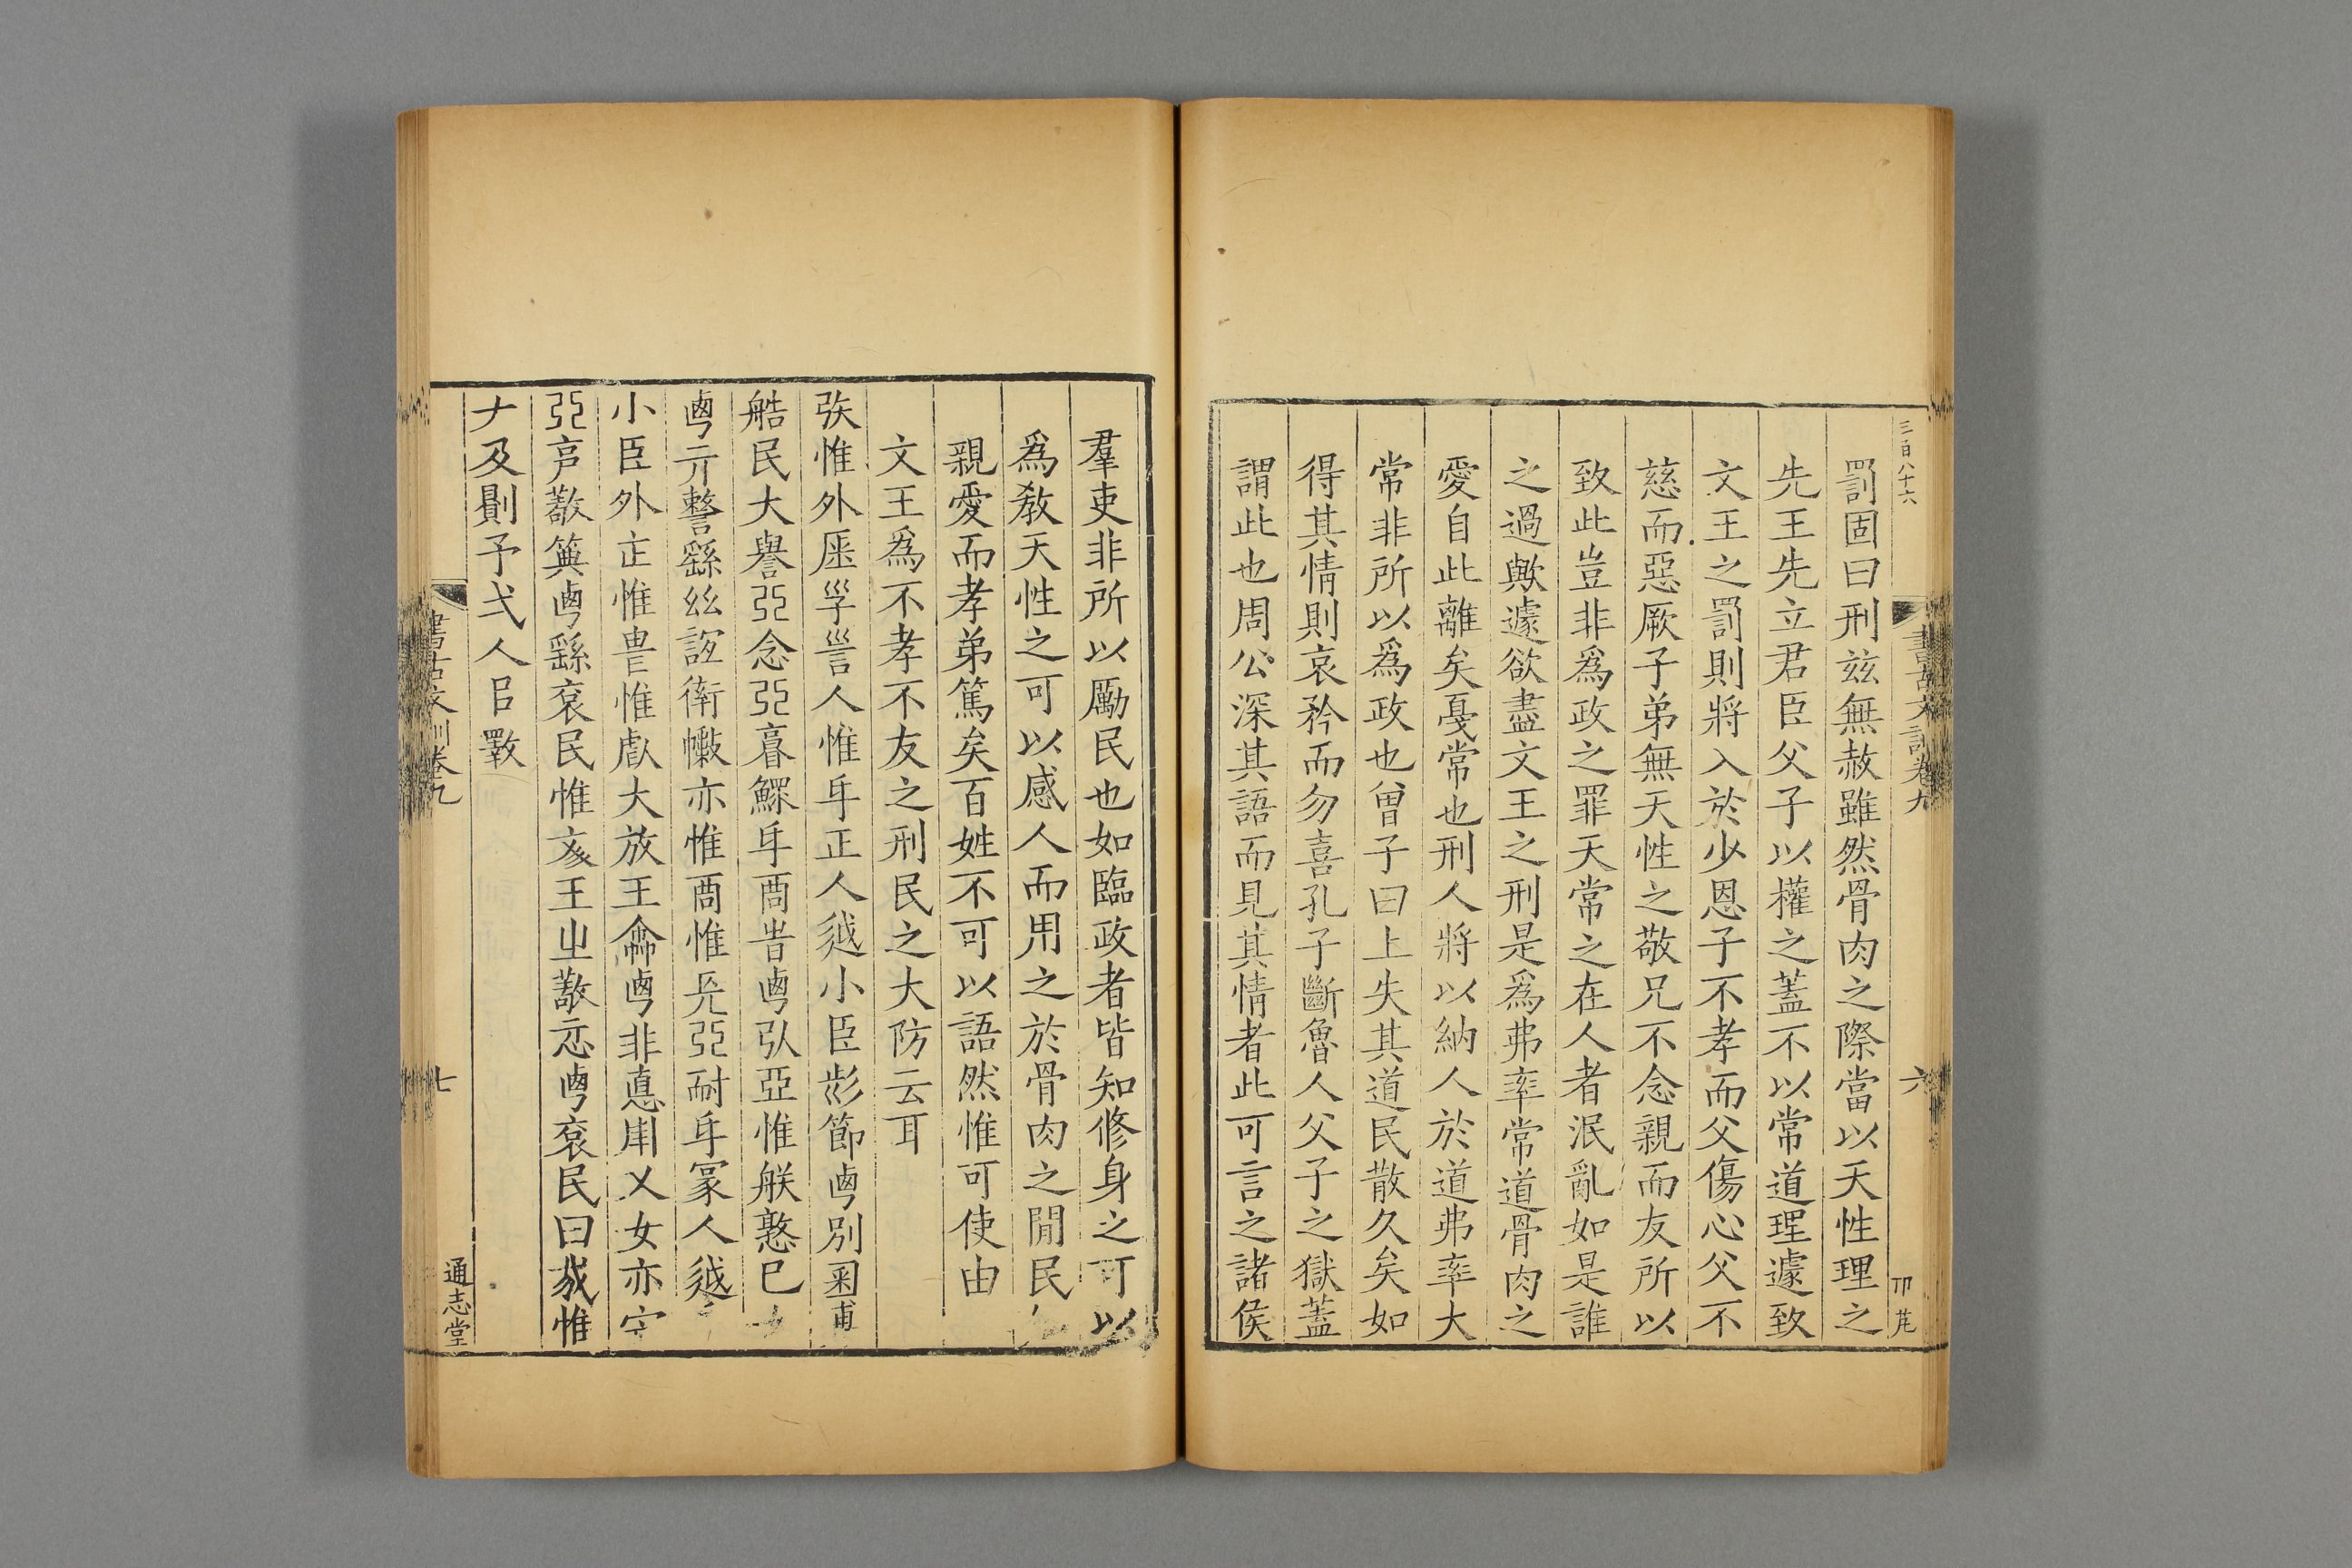 三百八十六
書古文訓卷九
六
罰固曰刑兹無赦雖然骨肉之際當以天性理之
先王先立君臣父子以權之蓋不以常道理遽致
文王之罰則將入於少恩子不孝而父傷心父不
慈而惡厥子弟無天性之敬兄不念親而友所以
致此豈非爲政之罪天常之在人者泯亂如是誰
之過歟遽欲盡文王之刑是爲弗率常道骨肉之
愛自此離矣戞常也刑人將以納人於道弗率大
常非所以爲政也曾子曰上失其道民散久矣如
得其情則哀矜而勿喜孔子斷魯人父子之獄蓋
謂此也周公深其語而見其情者此可言之諸侯
羣吏非所以勵民也如臨政者皆知修身之可以
爲教天性之可以感人而用之於骨肉之閒民
親愛而孝弟篤矣百姓不可以語然惟可使由
文王爲不孝不友之刑民之大防云耳
惟外𡥈人惟𠂝正人小臣節𠧟別
民大譽亞念亞𠂝𠧟弘亞惟憝巳
𠧟亓亦惟惟亞耐𠂝冡人
小臣外惟惟大放王𠧟非悳乂女亦
亞𠧟民惟王𠧟民曰惟
𠂇及予弌人㠯
書古文訓卷九
七
通志堂